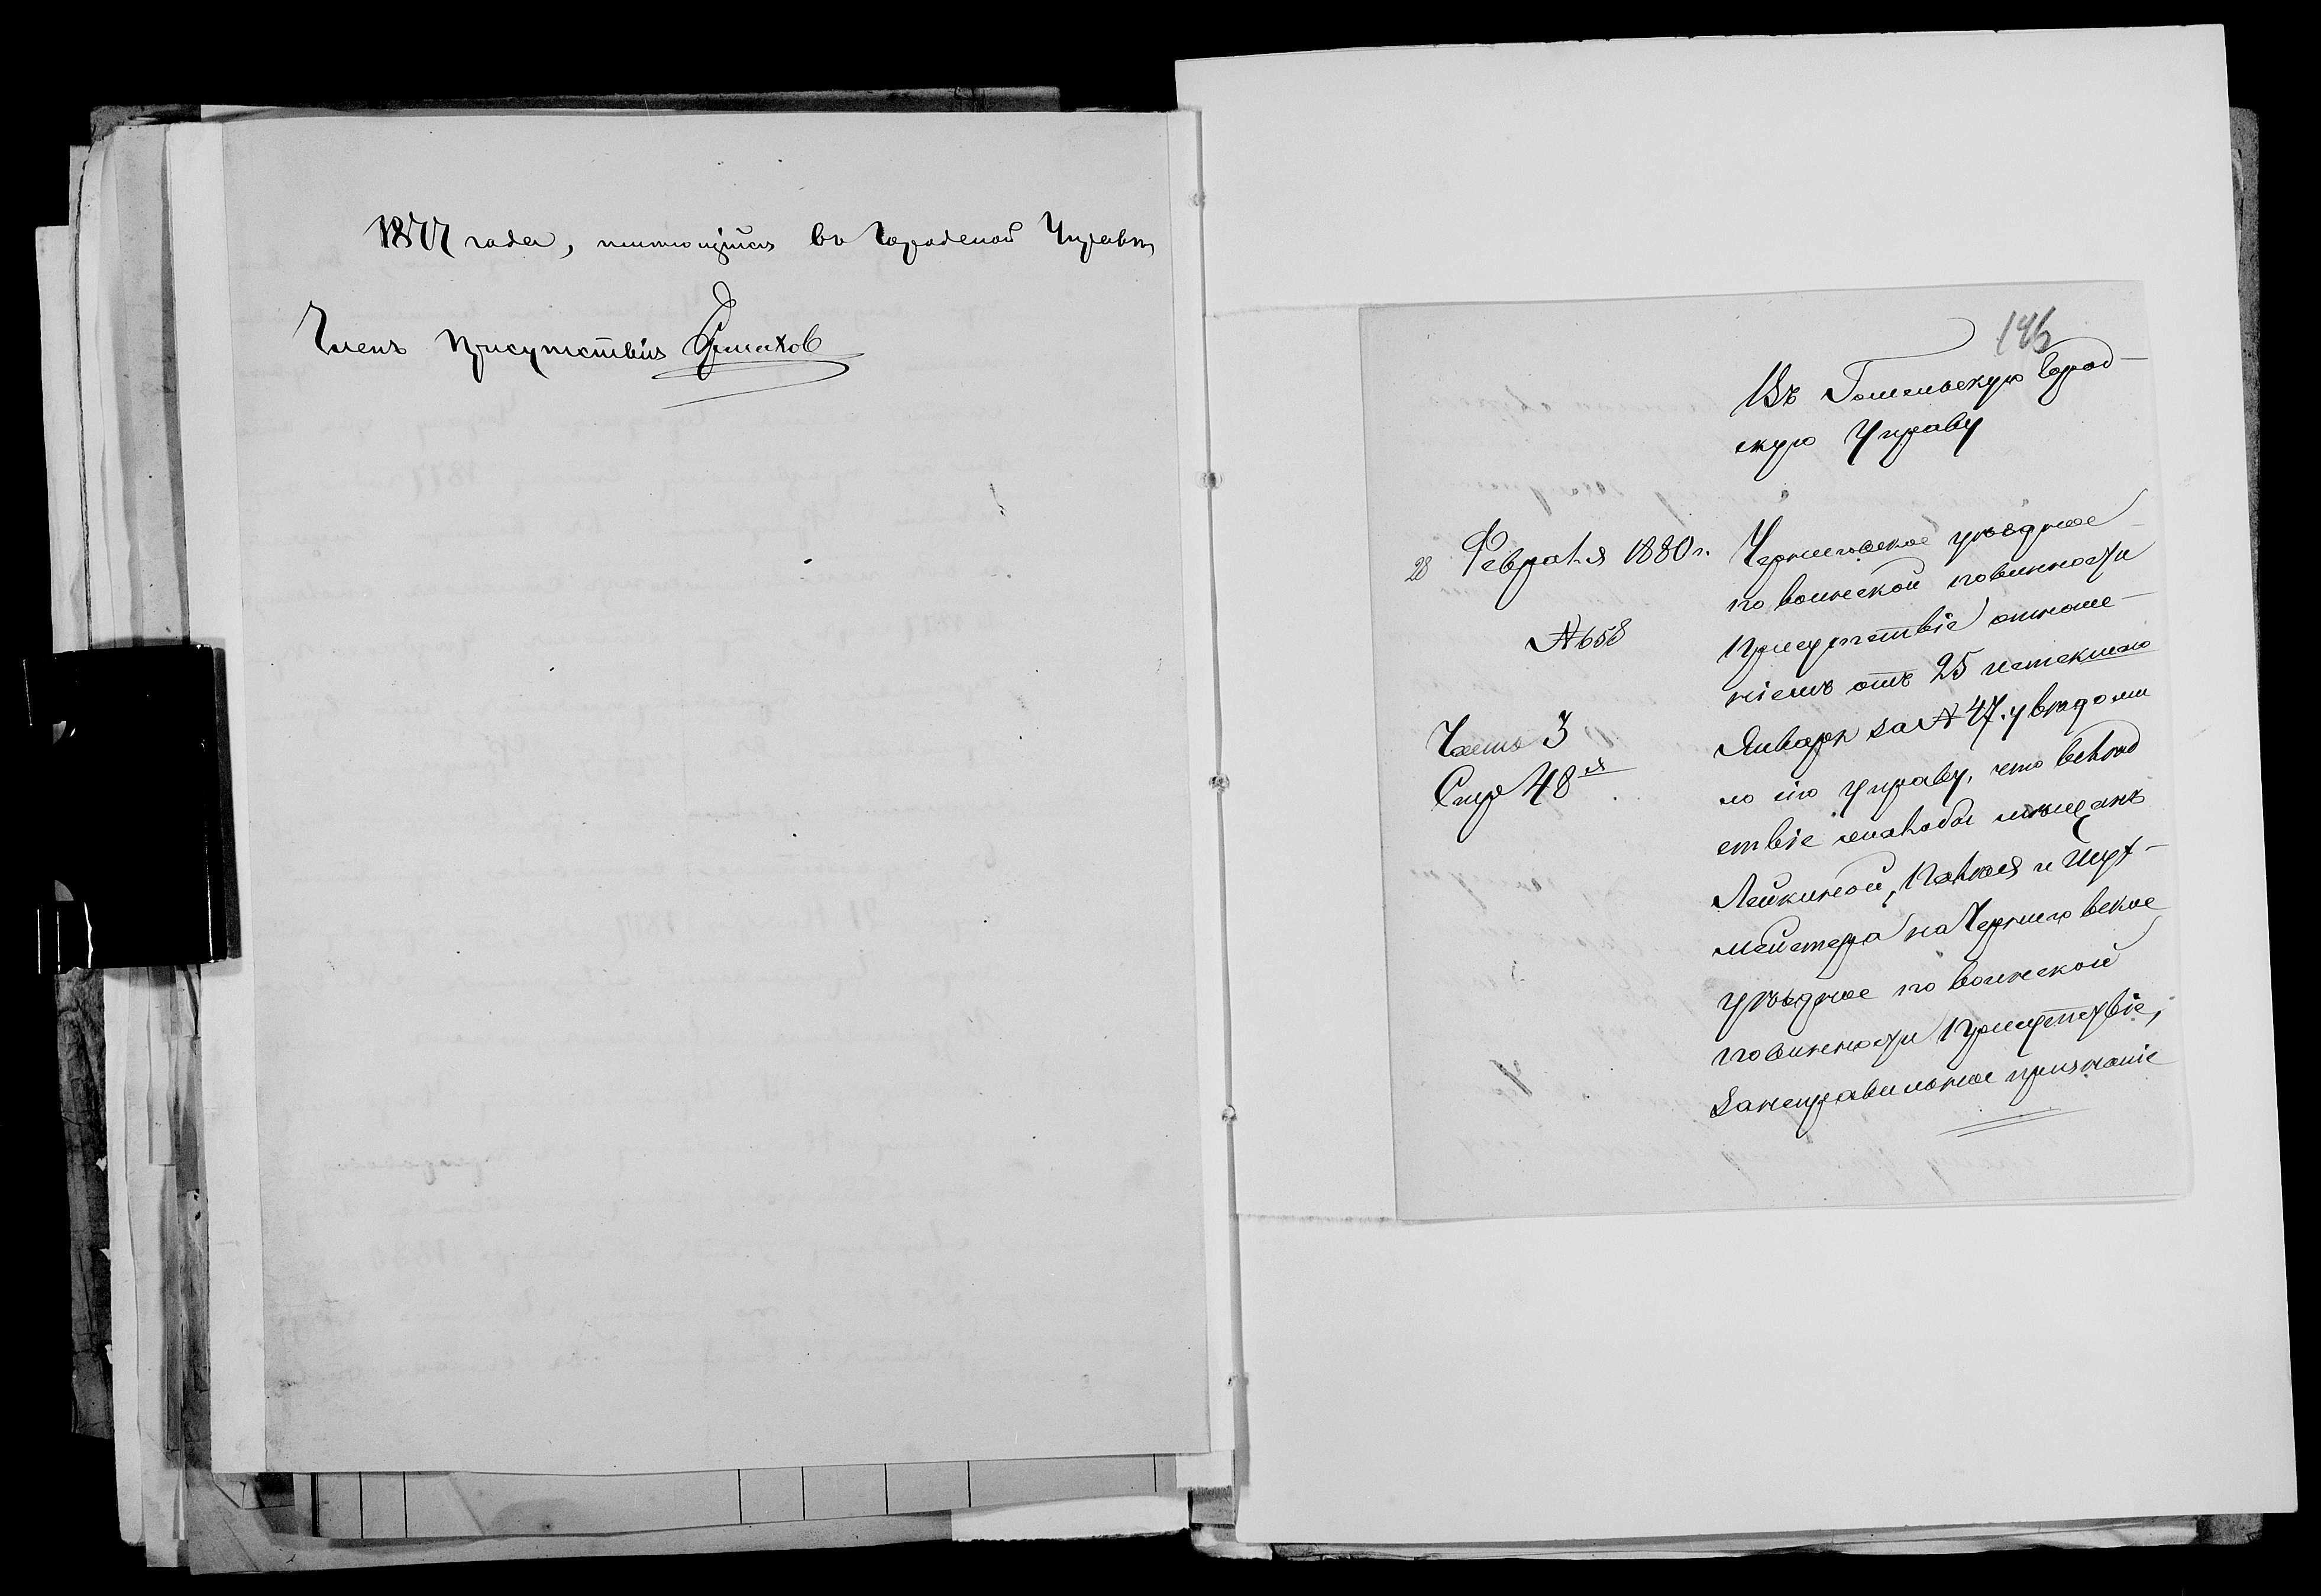 1877 года, имѣющійся въ Городской Управѣ
Членъ Присутствія
146
Въ Гомельскую Город-
скую Управу
28 Февраля 1880 г.
№ 658
Часть 3
Стр 48я
Черниговское уѣздное
по воинской повинности
Присутствіе отноше-
ніемъ отъ 25 истекшаго
Января за № 47. увѣдоми
ло сію Управу, что вслѣд
ствіе жалобы мѣщанъ
Лейкиной, и Шут-
мейстера на Черниговское
уѣздное по воинской
повинности Присутствіе,
за неправильное признаніе